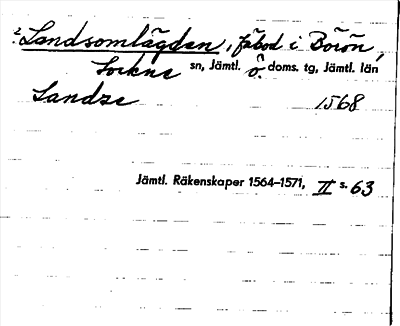 ?Landsomlägden, fäbod i Börön,
Lockne sn, Jämtl. Ö. doms. tg, Jämtl. län
Landze 1568
Jämtl. Räkenskaper 1564–1571, II s. 63